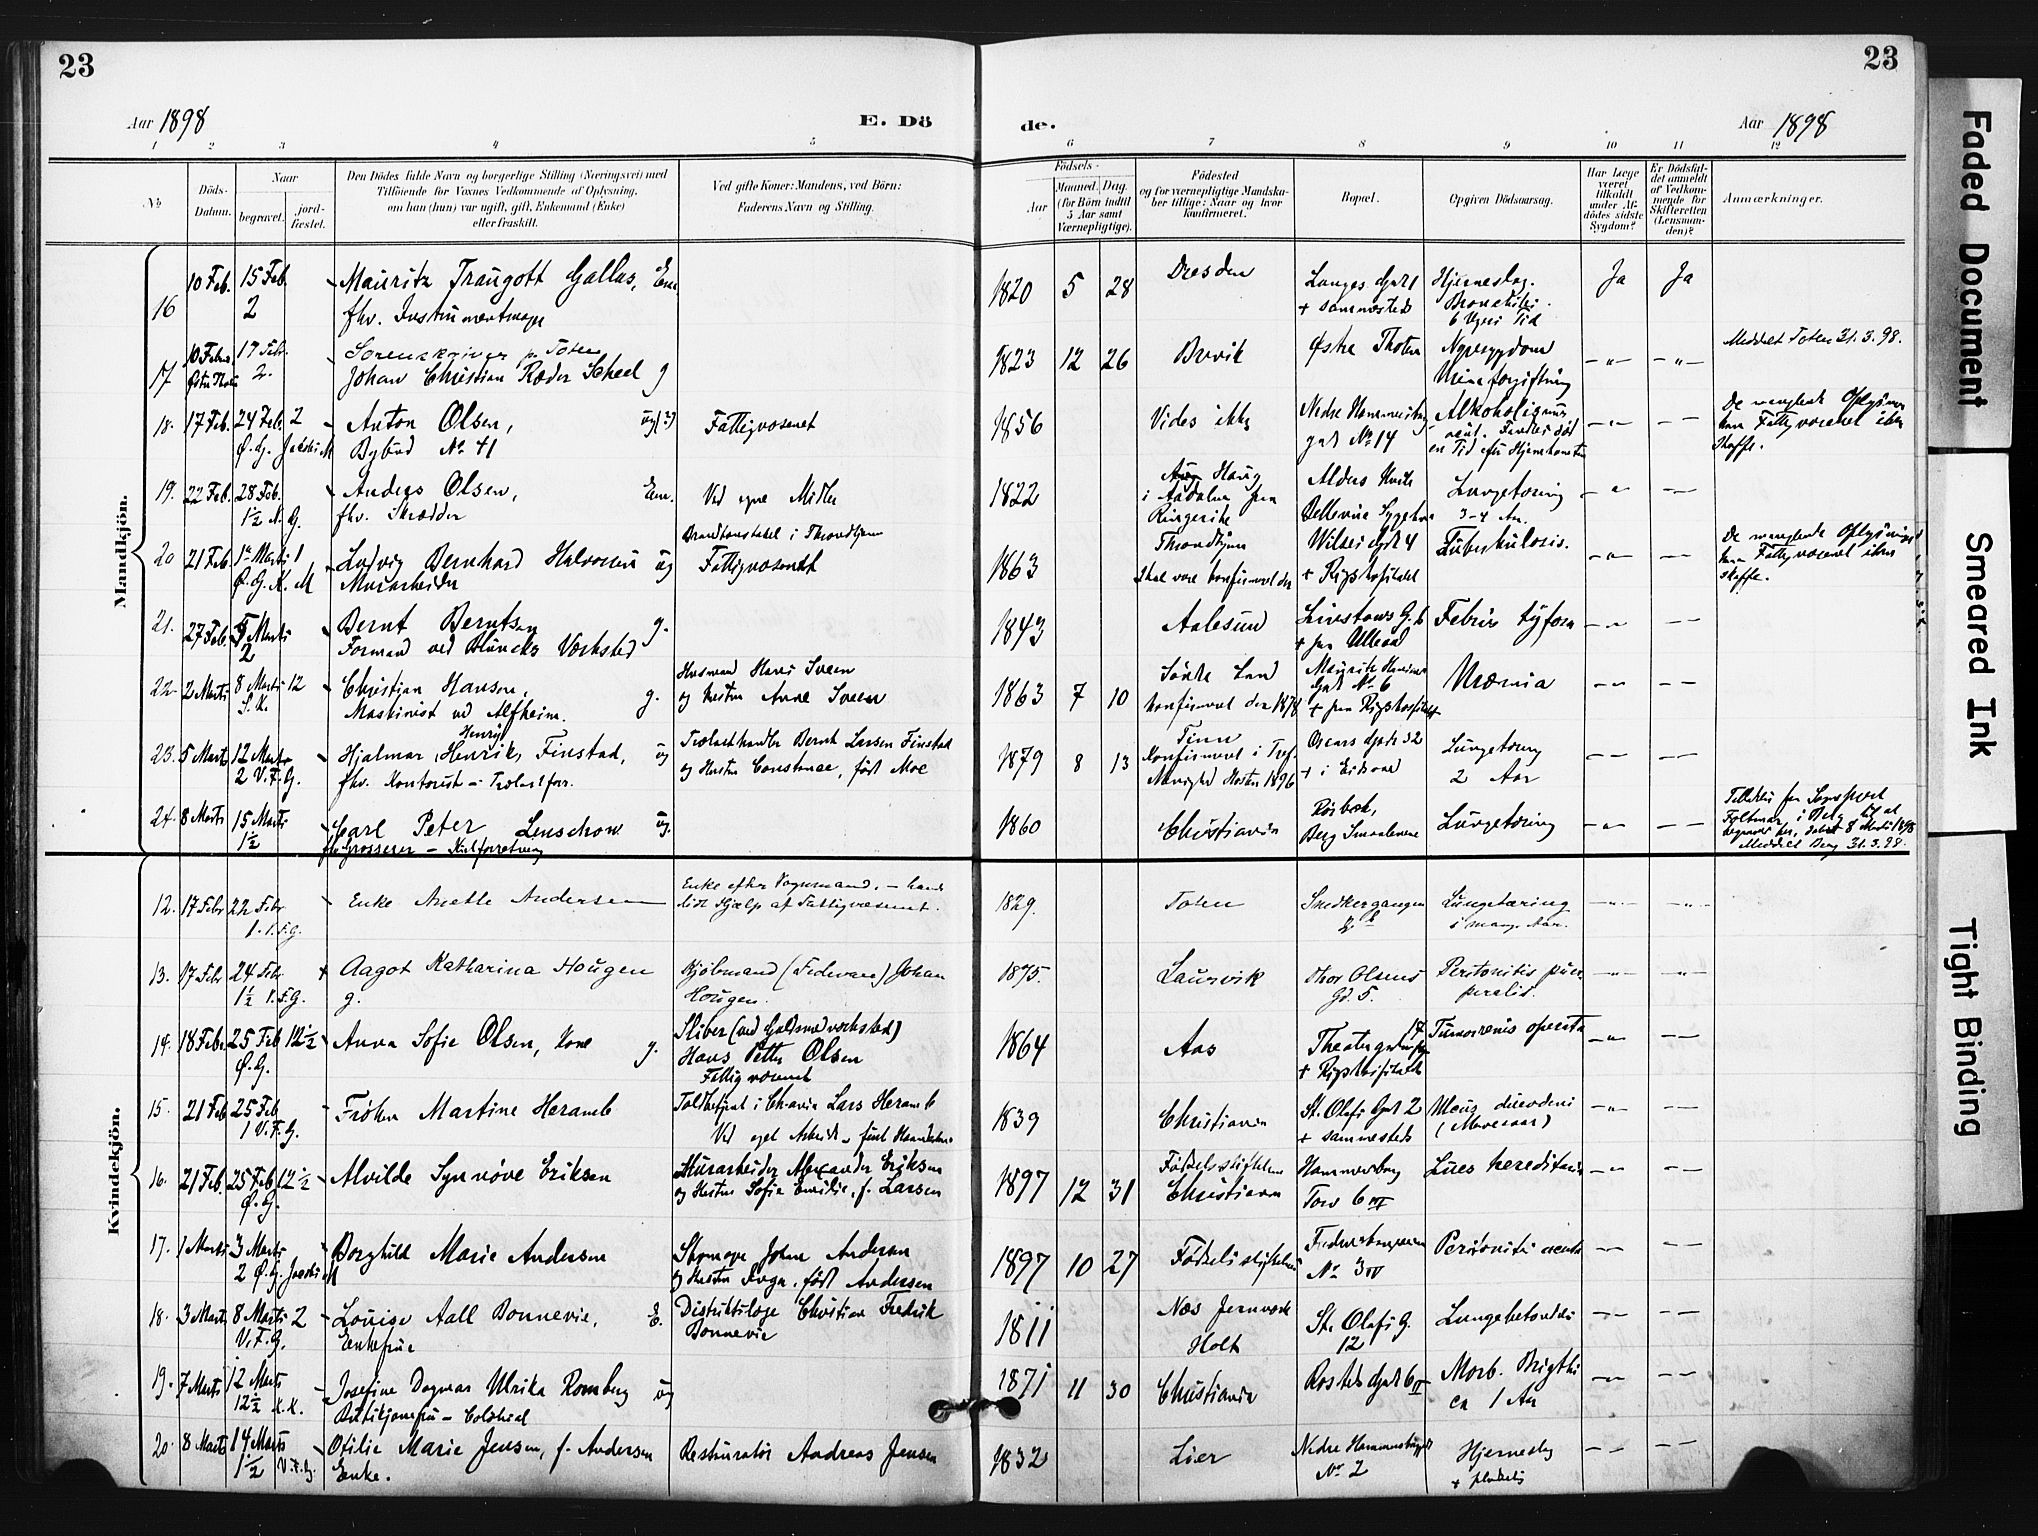 23
23
Aar 1898
E. Dö
de.
Aar 1898
1 2 3 4 5 6 7 8 9 10 11 12
No
Döds-Datum.
Naar
begravet.
jord-fæstet.
Den Dödes fulde Navn og borgerlige Stilling (Næringsvei) med
Tilföiende for Voxnes Vedkommende af Oplysning,
om han (hun) var ugift, gift, Enkemand (Enke)
eller fraskilt.
Ved gifte Koner: Mandens, ved Börn:
Faderens Navn og Stilling.
Födsels-
Aar
Maaned. Dag.
(for Börn indtil
5 Aar samt
Værnepligtige).
Födested
og for værnepligtige Mandska-
ber tillige: Naar og hvor
konfirmeret.
Bopæl.
Opgiven Dödsaarsag.
Har Læge
været
tilkaldt
under Af-
dödes sidste
Sygdom?
Er Dödsfal-
det anmeldt
af Vedkom-
mende for
Skifteretten
(Lensman-
den)?
Anmærkninger.
Mandkjön.
16 10 Feb. 15 Feb. 2 Mauritz Traugott Gallus, Em. 1820 5 28 Dresden Langes Gade 1 Hjerneslag. Ja Ja
fhv. Instrumentmager + sammesteds Bronchitis. 6 Ugers Tid
17 10 Febr. 17 Febr. 2. Sorenskriver p. Toten
Johan Christian Ræder Scheel g 1823 12 26 Brevik Østre Thoten Nyresygdom Urinforgiftning Meddelt Toten 31.3.98.
18. 17 Feb. 24 Feb. 2 Anton Olsen, ug(?) Fattigvæsenet 1856 Vides ikke Nedre Hammersborg gade No 14 Alkoholismus
Ø.G. Jakobi M Bybud No 41 acut. Fandtes død en Tid efter Hjemkomsten
De manglende Oplysninger kan Fattigvæsenet ikke skaffe.
19. 22 Feb. 28 Feb. 1½ N.G. Anders Olsen, Em. Ved egne Midler 1822 Haug i Aadalen paa Ringerike Lungetæring 3-4 Aar.
fhv. Skrædder
20 21 Feb. 1ste Marts 1 Ludvig Bernhard Halvorsen ug Brandkonstabel i Throndhjem
Ø.G. K. M Murarbeider Fattigvæsenet 1863 Throndhjem Skal være konfirmeret der Wilses Gade 4 + Rigshospitalet Tuberkulosis.
De manglende Oplysninger kan Fattigvæsenet ikke skaffe.
21. 27 Feb. 5 Marts 2 Bernt Berntsen g. 1843 Aalesund Linstows G. 6 + paa Ullevaal Febris tyfoid
Formand ved Blüncks Værksted
22 2 Marts 8 Marts 12 Christian Hansen, Husmand Hans Sveen
S.K. Maskinist ved Alfheim. g. og Hustru Anne Sveen 1863 7 10 Søndre Land konfirmeret der 1878 Mauritz Hansens Gade No 6 + paa Rigshospitalet Uræmia
23. 5 Marts 12 Marts 2 V.F.G. Hjalmar Henrik Henry Finstad, ug Trelasthandler Bernt Larsen Finstad
fhv. Kontorist - Trelastforr. og Hustru Constance, født Moe 1879 8 13 Konfirmeret i Menighed Høsten 1896 Oscars Gade 32 + i Lungetæring 2 Aar
24. 8 Marts 15 Marts 1½ Carl Peter Lenschow ug. 1860 Christiania Berg Smaalenene Lungetæring
fhv. Grosserer - Kulforretning
Meddelt Berg 31.3.98.
Kvindekjön.
12. 17 Febr 22 Febr 1. V.F.G. Enke Anette Andersen Enke efter Vognmand. - havde lidt Hjælp af Fattigvæsenet. 1829. Toten Snedkergangen Lungetæring i mange Aar.
13. 17 Febr 24 Febr 1½ V.F.G. Aagot Katharina Hougen g. Kjøbmand (Fedevare) Johan Hougen. 1875. Laurvik Thor Olsens Gd. 5. Peritonitis puerperalis.
14. 18 Febr 25 Feb 12½ Ø.G. Anna Sofie Olsen, Kone g. Sliber (ved Guldsmedværksted) Hans Petter Olsen Fattigvæsenet 1864 Aas Theatergaden 17 + Rigshospitalet Tumor renis operata
15. 21 Feb 25 Feb 1 V.F.G. Frøken Martine Heramb Toldbetjent i Ch-ania Lars Heramb
Ved eget Arbeide - fint Haandarbeide 1839 Christiania St. Olafs Gade 2 + sammesteds Ulcus duodeni (Mavesaar)
16. 21 Feb. 25 Feb 12½ Ø.G. Alvilde Synnøve Eriksen Murarbeider Alexander Eriksen
og Hustru Sofie Emilie, f. Larsen 1897 12 31 Fødselsstiftelsen Christiania Hammersborg Torv 6 III Lues hereditaria
17. 1 Marts 3 Marts 2 Ø.G. Jakobi M Borghild Marie Andersen Skomager Johan Andersen
og Hustru Inga, født Andersen 1897 10 27 Fødselsstiftelsen No 3 IV Peritonitis acuta
18. 3 Marts 8 Marts 2 V.F.G. Louise Aall Bonnevie, E. Distriktslæge Christian Fredrik Bonnevie
Enkefrue 1811 Næs Jernværk Holt St. Olafs G. 12 Lungebetændelse
19. 7 Marts 12 Marts 12½ K.K. Josefine Dagmar Ulrika Romberg ug 1871 11 30 Christiania Rosteds Gade 6 II Morb. Brigthi ca 1 Aar
20. 8 Marts 14 Marts 1½ V.F.G. Otilie Marie Jensen, f. Andersen Restauratør Andreas Jensen
Enke. 1832 Lier Nedre Hammersborg No 2 Hjerneslag
Faded Document
Smeared Ink
Tight Binding